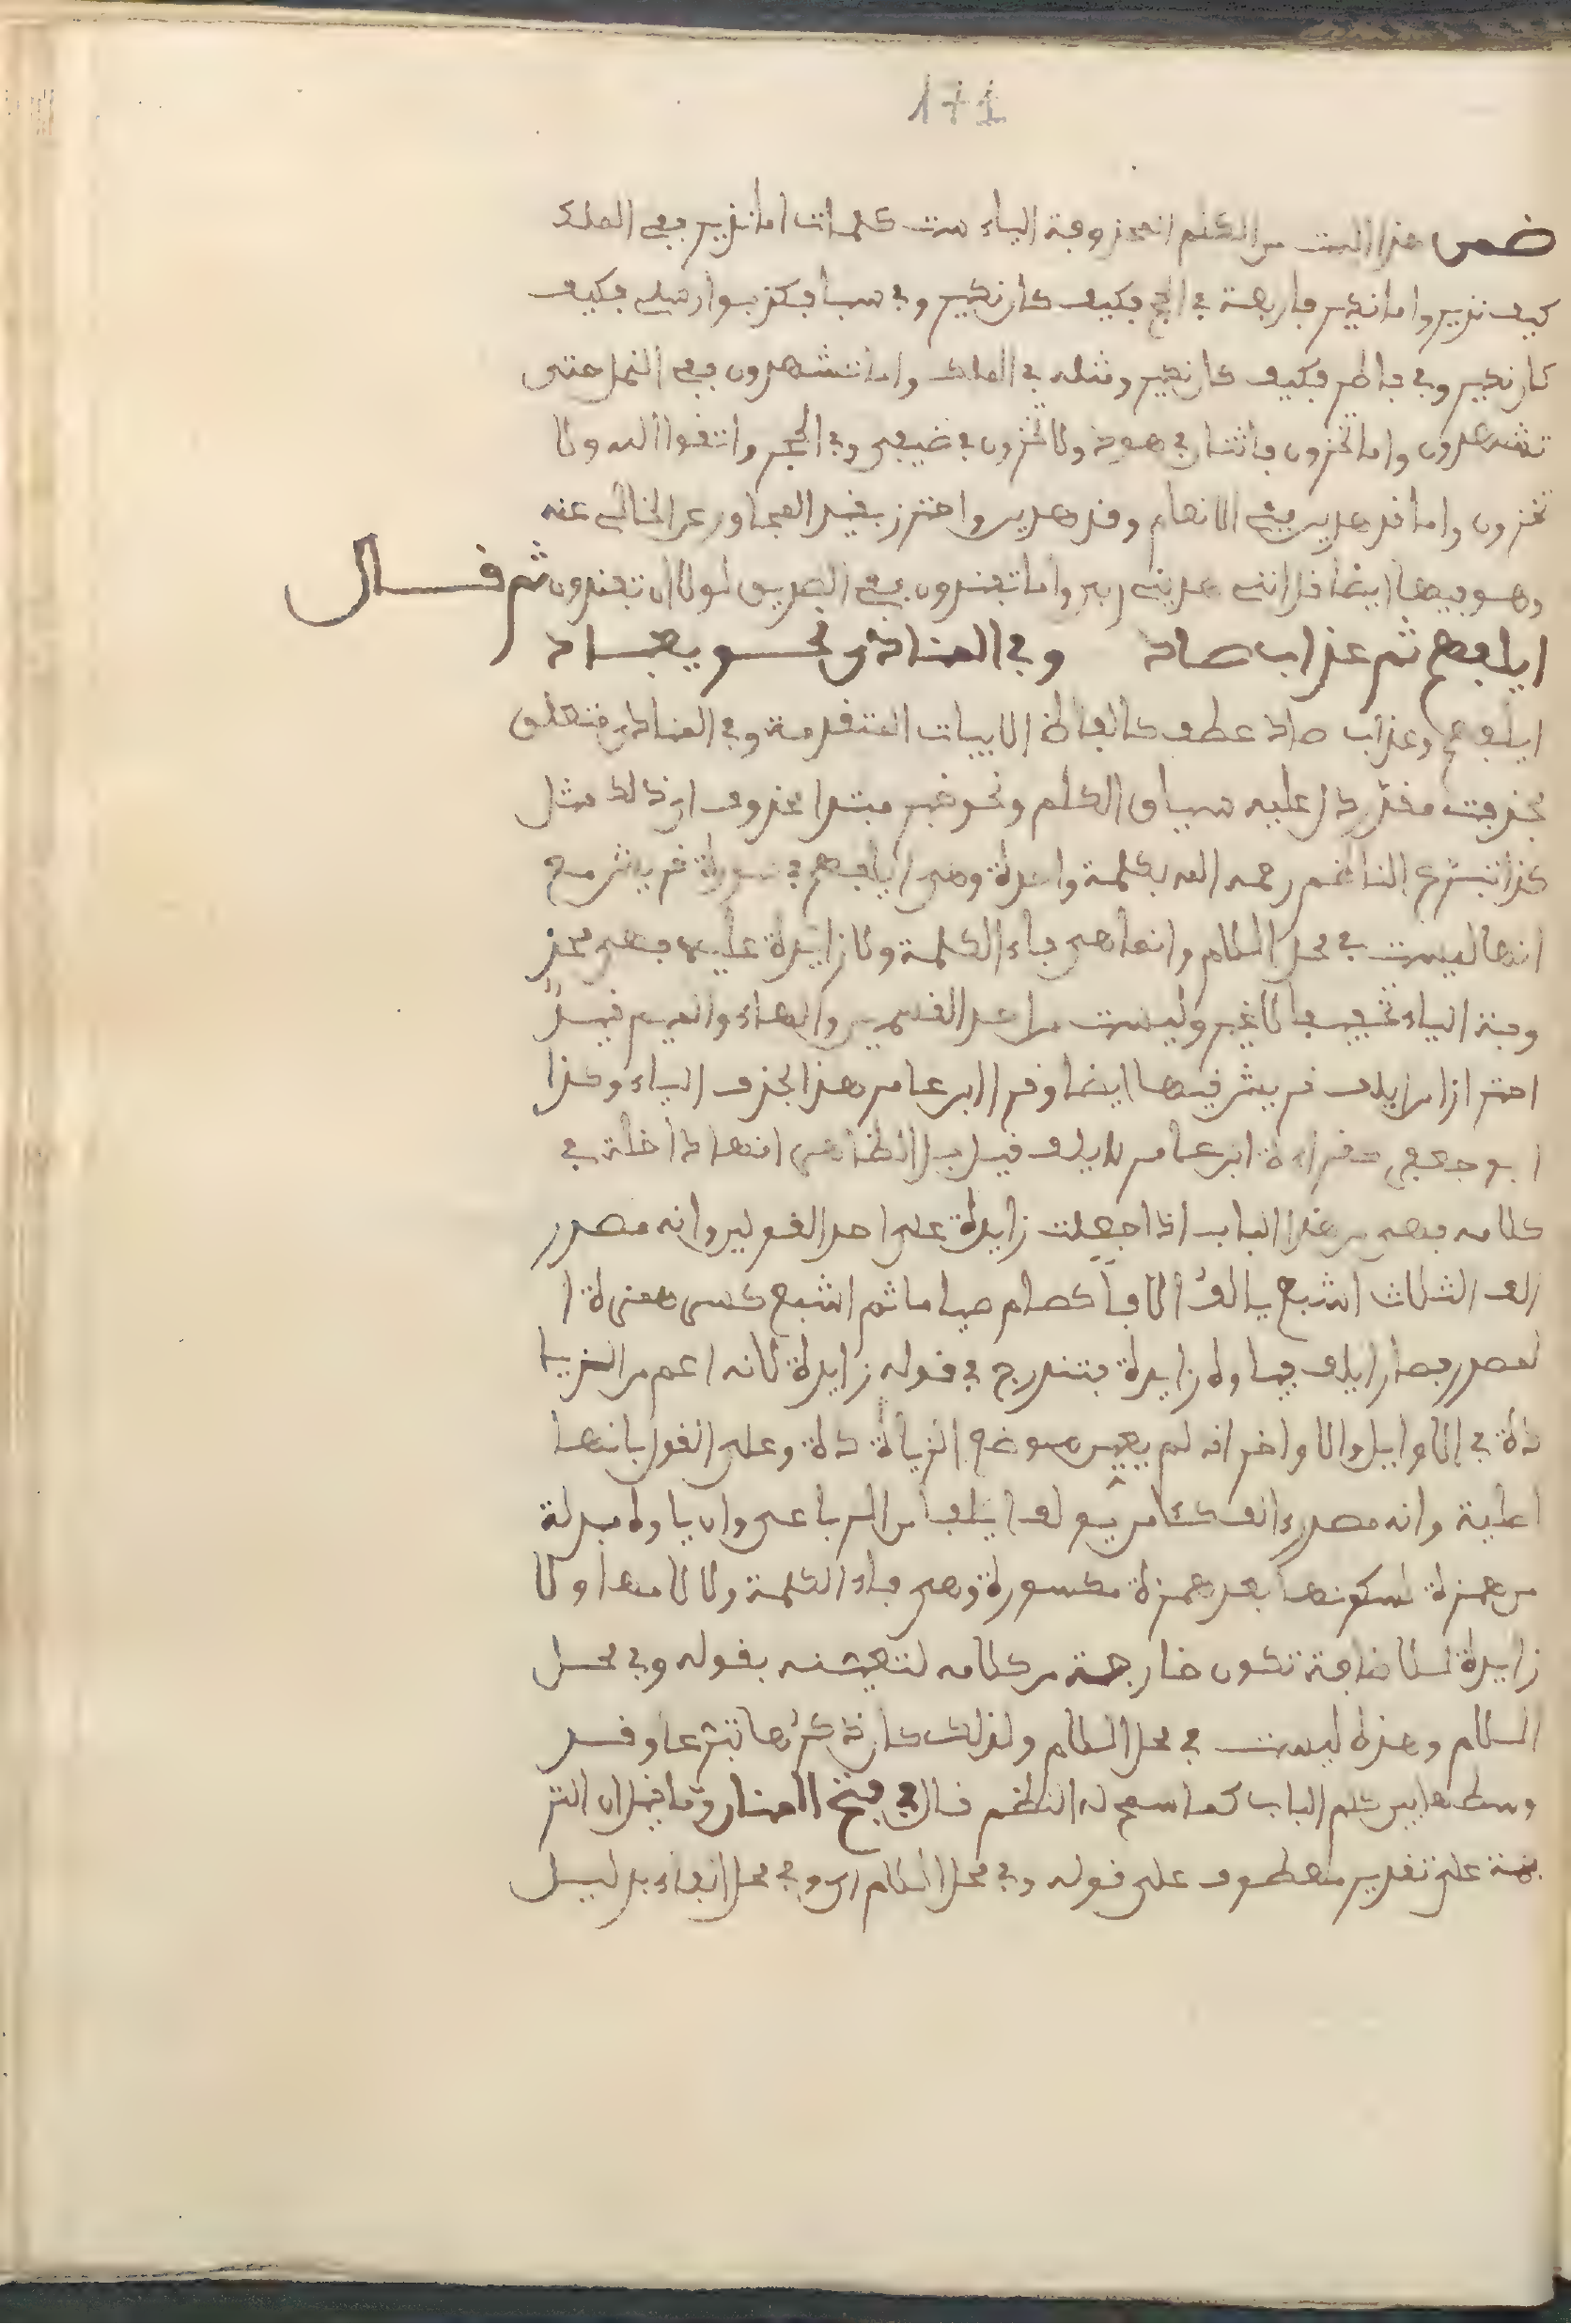 171
ضمن هذا البيت من الكلم المحذوفة الياء ست كلمات اما نذير ففي الملك
كيف نذير واما نكير فاربعة في الحج فكيف كان نكير وفي سبا فكذبوا رسلي فكيف
كان نكير وفي فاطر فكيف كان نكير ومثله في الملك واما تشهدون ففي النمل حتى
تشهدون واما تخزون فاثنان في هود ولا تخزون في ضيفي وفي الحجر واتقوا الله ولا
تخزون واما قد هدين ففي الانعام وقد هدين واحترز بقيد المجاور عن الخالي عنه
وهو فيها ايضا قل انني هديني ربي واما تفندون ففي الصديق لولا ان تفندون ثم قال
ايلافهم ثم عذاب صاد وفي المنادى نحو يعباد
ايلافهم وعذاب صاد عطف كالفاظ الابيات المتقدمة وفي المنادى متعلق
بحذفت مقدر دل عليه سياق الكلم ونحو خبر مبتدا محذوف اي ذلك مثل
كذا تبرع الناظم رحمه الله بكلمة واحدة وهي ايلافهم في سورة قريش مع
انها ليست في محل اللام وانما هي فاء الكلمة ولا زايدة عليها فهي محذ
وفة الياء تخفيفا لا غير وليست من احد القسمين والهاء والميم قيد
احترازا من ايلاف قريش فيها ايضا وقرا ابن عامر هذا بحذف الياء وكذا
ابو جعفر كقراءة ابن عامر لايلاف قيل بل الظاهر انها داخلة في
كلامه فهي من هذا الباب اذا جعلت زايدة على احد القولين وانه مصدر
الف الثلاث اشبع يالف الافا كصام صياما ثم اشبع كسر همزة ا
لمصدر فصار ايلاف فياوه زايدة فتندرج في قوله زايدة لانه اعم من الزيا
دة في الاوايل والاواخر انه لم يعين موضع الزيادة دة وعلى القول بانها
اصلية وانه مصدر الف كئامن يولف ايلافا من الرباعي وان ياوه مبدلة
من همزة لسكونها بعد همزة مكسورة وهي فاء الكلمة ولا لامها ولا
زايدة للاضافة تكون خارجة من كلامه لتعيينه بقوله وفي محل
اللام وهذه ليست في محل اللام ولذلك كان ذكرها تبرعا وقد
وسطها بين كلم الباب كما سمح له النظم قال في فتح المنان وما قيل ان التر
جمة على تقدير معطوف على قوله وفي محل اللام اي وفي محل الفاء بدليل